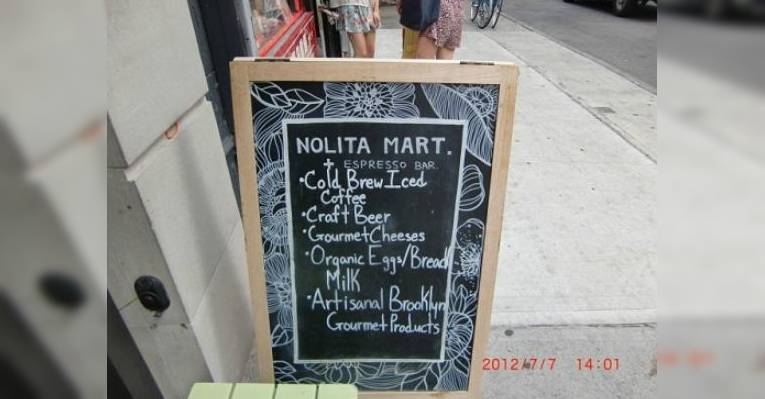 NOLITA MART.
+ ESPRESSO BAR
•Cold Brew Iced
Coffee
•Craft Beer
•Gourmet Cheeses
•Organic Eggs/Bread
Milk
•Artisanal Brooklyn
Gourmet Products
2012/7/7 14:01